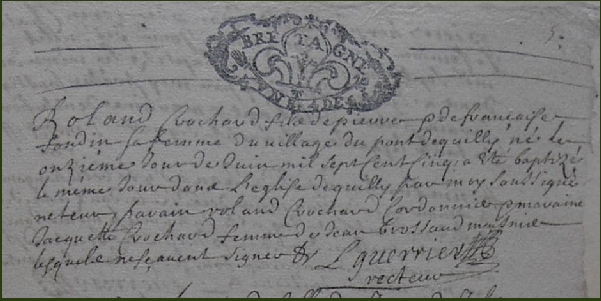 BRETAGNE
Roland Crochard fils de pierre & de francoise
Jondin sa femme du village du pont de quilly né le
onzieme Jour de Juin mil sept sent sinq a été baptizé
le meme Jour dans l'eglise de quilly par moy soussigné
recteur parain roland Crochard Cordonnier & maraine
Jacquette Crochard femme de Jean brossaud
lesquels ne scavent signer
L guerrier
recteur